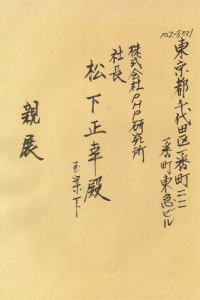 102-8331
東京都千代田区一番町二一
一番町東急ビル
株式会社PHP研究所
社長
松下正幸殿
玉案下
親展